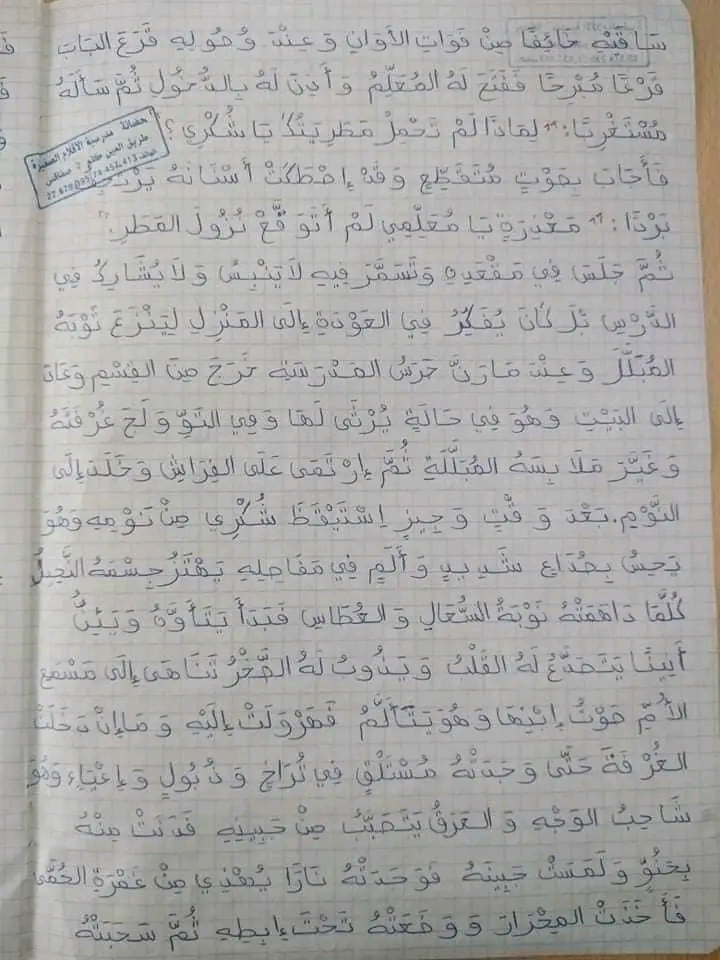 سَاقَتْهِ خَائِفًا مِنْ فَوَاتِ الأَوَانِ وَعِنْدَ وُصُولِهِ قَرَعَ البَابَ
قَرْعًا مُبْرِحًا فَفَتَحَ لَهُ المُعَلِّمُ وَأَذِنَ لَهُ بِالدُّخُولِ ثُمَّ سَأَلَهُ
مُسْتَغْرِبًا: "لِمَاذَا لَمْ تَحْمِلْ مَطَرِيَتُكَ يَا شُكْرِي؟"
فَأَجَابَ بِصَوْتٍ مُتَقَطِّعٍ وَقَدْ إِصْطَكَتْ أَسْنَانَهُ يَرْتَجِفُ
بَرْدًا: "مَعْذِرَةٍ يَا مُعَلِّمِي لَمْ أَتَوَقَّعْ نُزُولَ المَطَرِ."
ثُمَّ جَلَسَ فِي مَقْعَدِهِ وَتَسَمَّرَ فِيهِ لَا يَنْبِسُ وَلَا يُشَارِكُ فِي
الدَّرْسِ بَلْ كَانَ يُفَكِّرُ فِي العَوْدَةِ إِلَى المَنْزِلِ لِيَنْزَعَ ثَوْبَهُ
المُبَلَّلَ وَعِنْدَمَا رَنَّ جَرَسُ المَدْرَسَةِ خَرَجَ مِنَ القِسْمِ وَعَادَ
إِلَى البَيْتِ وَهُوَ فِي حَالَةٍ يُرْثَى لَهَا وَفِي التَوِّ وَلَجَ غُرْفَتَهُ
وَغَيَّرَ مَلَابِسَهُ المُبَلَّلَةِ ثُمَّ إِرْتَمَى عَلَى الفِرَاشِ وَخَلَدَ إِلَى
النَّوْمِ. بَعْدَ وَقْتٍ وَجِيزٍ اِسْتَيْقَظَ شُكْرِي مِنْ نَوْمِهِ وَهُوَ
يَحِسُ بِصُدَاعٍ شَدِيدٍ وَأَلَمٍ فِي مَفَاصِلِهِ يَهْتَزُ جِسْمَهُ النَّحِيلُ
كُلَّمَا دَاهَمَتْهُ نَوْبَةُ السُّعَالِ وَالعُطَاسِ فَبَدَأَ يَتَأَوَّهُ وَيَئِنُّ
أَنِينًا يَتَصَدَّعُ لَهُ القَلْبُ وَيَذُوبُ لَهُ الصَّخْرُ تَنَاهَى إِلَى مَسْمَعِ
الأُمِّ صَوْتُ اِبْنِهَا وَهُوَ يَتَأَلَّمُ فَهَرْوَلَتْ إِلَيْهِ وَمَا إِنْ دَخَلَتْ
الغُرْفَةَ حَتَّى وَجَدَتْهُ مُسْتَلْقٍ فِي تُرَاخٍ وَذُبُولٍ وَإِعْيَاءٍ وَهُوَ
شَاحِبُ الوَجْهِ وَالعَرَقُ يَتَصَبَّبُ مِنْ جَبِينِهِ فَدَنَتْ مِنْهُ
بِحُنُوٍّ وَلَمَسَتْ جَبِينَهُ فَوَجَدَتْهُ نَارًا يُهْذِي مِنْ غَمْرَةِ الحُمَّى
فَأَخَذَتْ المِحْرَارَ وَوَضَعَتْهُ تَحْتَ إِبِطِهِ ثُمَّ سَحَبَتْهُ
حضانة مدرسية الأقلام الصغيرة